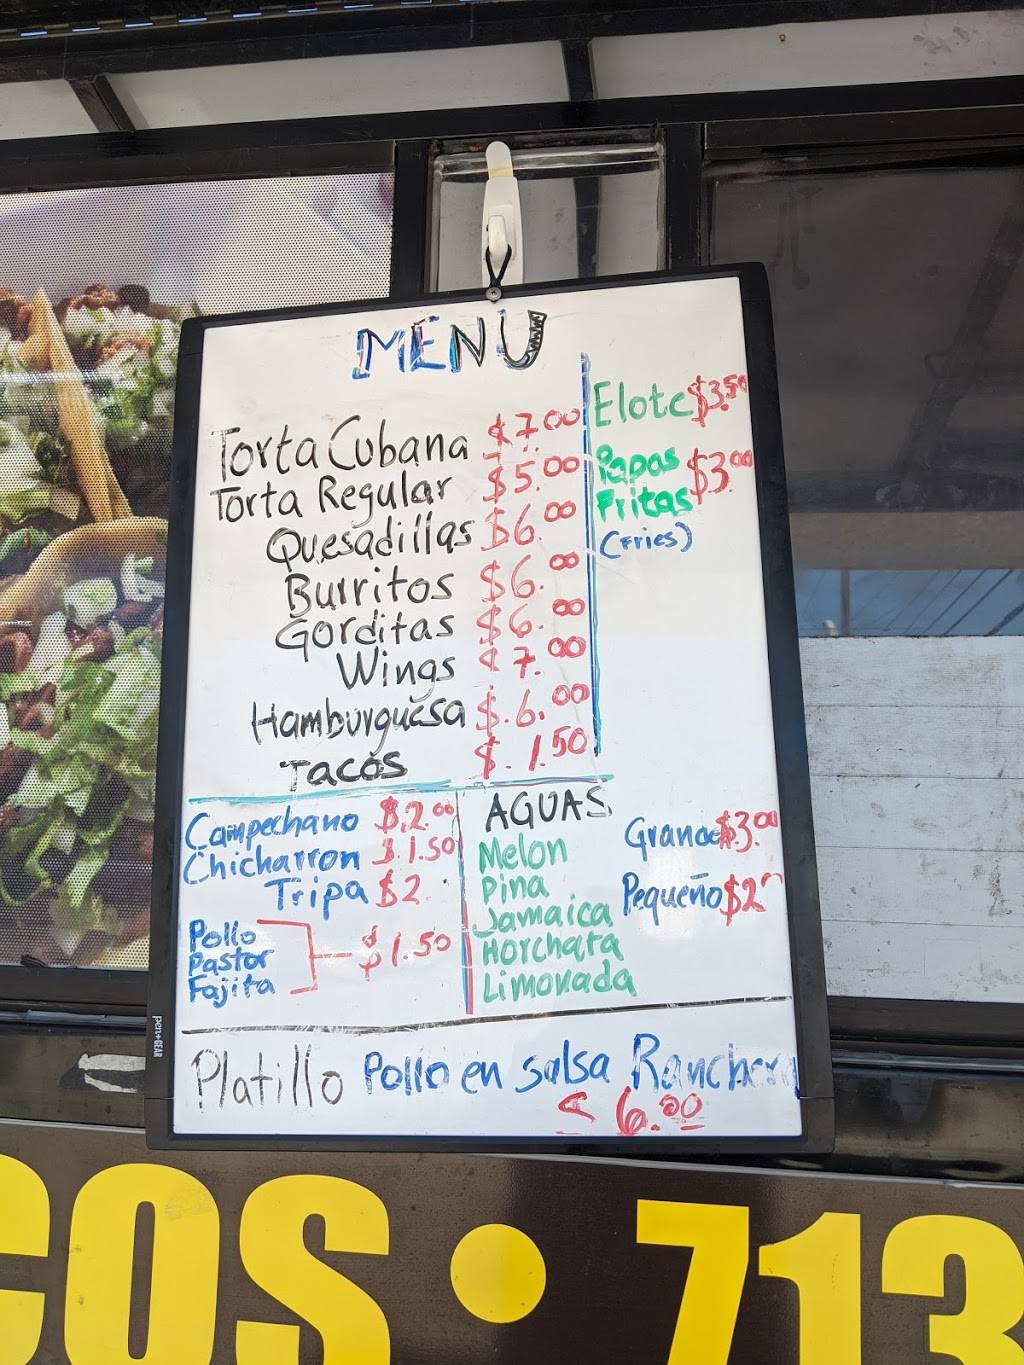 MENU
Torta Cubana $7.00
Torta Regular $5.00
Quesadillas $6.00
Burritos $6.00
Gorditas $6.00
Wings $7.00
Hamburguesa $.6.00
Tacos $.1.50
Elote $3.50
Papas
Fritas $3.00
(Fries)
Campechano $.2.00
Chicharron $.1.50
Tripa $2.
Pollo
Pastor $1.50
Fajita
AGUAS
Melon
Pina
Jamaica
Horchata
Limonada
Grande $3.00
Pequeño $2
Platillo Pollo en salsa Ranchera
A 6.00
pen+GEAR
COS • 713